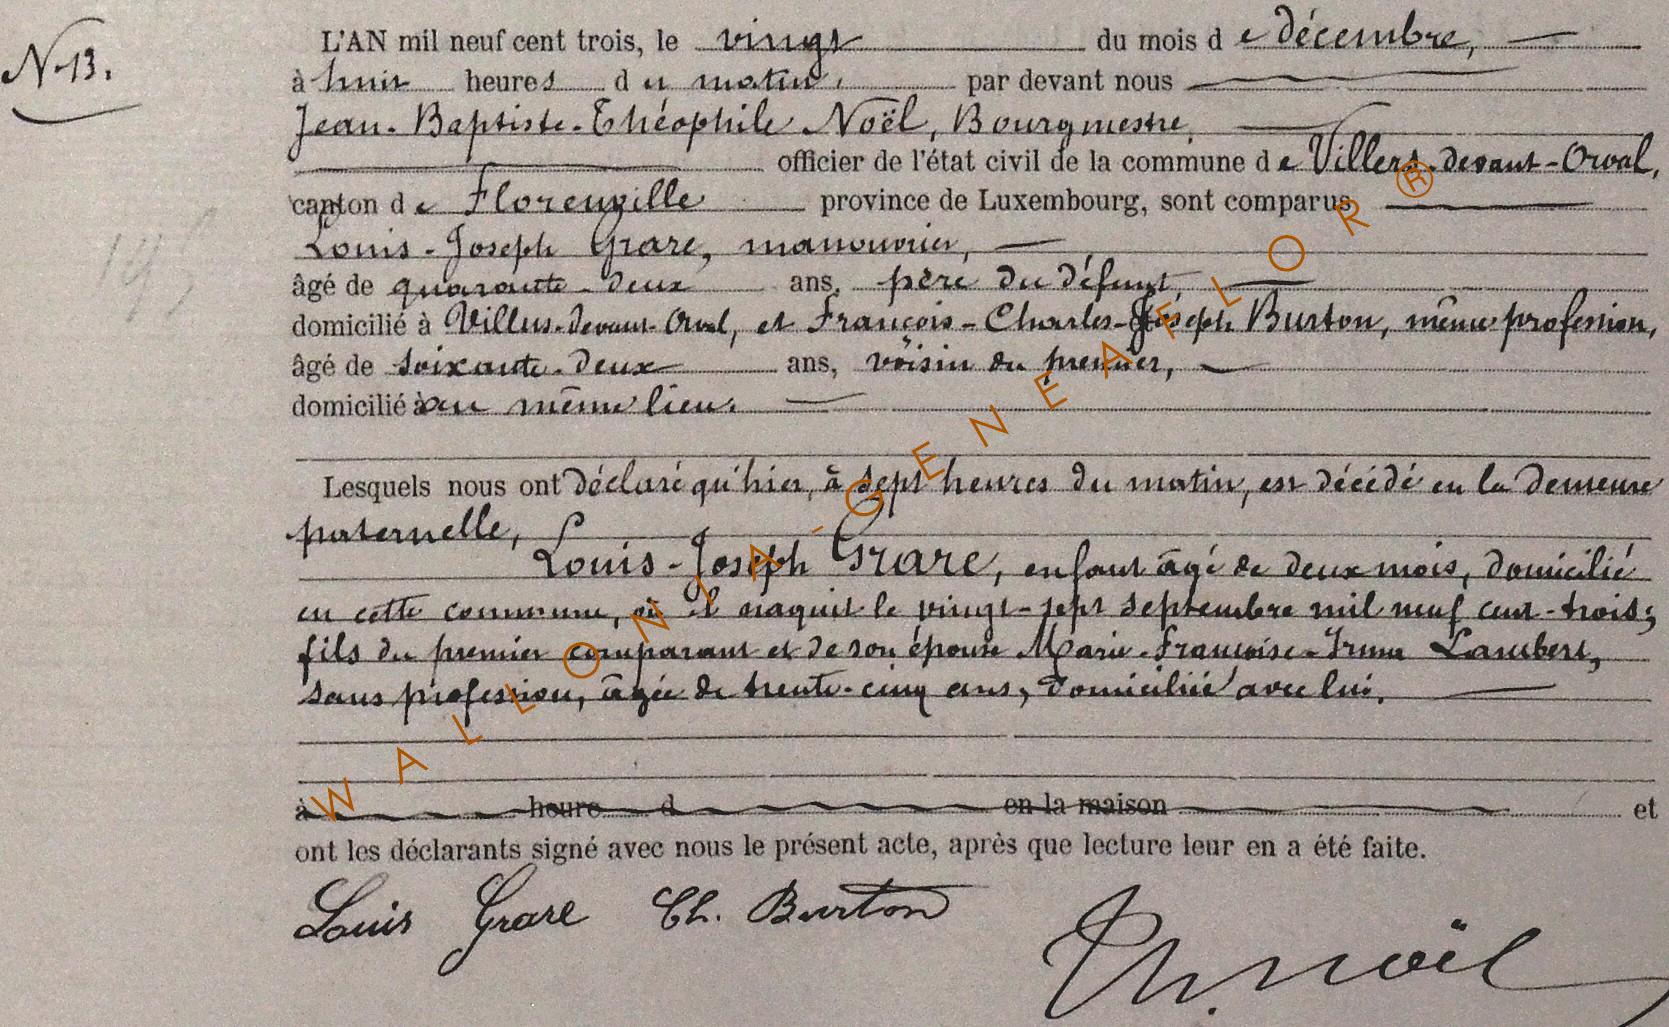 N. 13.
L'AN mil neuf cent trois, le vingt du mois de décembre,
à huit heures du matin, par devant nous
Jean-Baptiste-Théophile Noël, Bourgmestre,
officier de l'état civil de la commune de Villers-devant-Orval,
canton de Florenville province de Luxembourg, sont comparus
Louis-Joseph Grare, manouvrier,
âgé de quarante-deux ans, père du défunt,
domicilié à Villers-devant-Orval, et François-Charles-Joseph Burton, même profession,
âgé de soixante-deux ans, voisin du premier,
domicilié au même lieu.
Lesquels nous ont déclaré qu'hier, à sept heures du matin, est décédé en la demeure
paternelle,
Louis-Joseph Grare, enfant âgé de deux mois, domicilié
en cette commune, où il naquit le vingt-sept septembre mil neuf cent-trois;
fils du premier comparant et de son épouse Marie-Françoise-Irma Lambert,
sans profession, âgée de trente-cinq ans, domiciliée avec lui.
à heure d en la maison et
ont les déclarants signé avec nous le présent acte, après que lecture leur en a été faite.
Louis Grare Ch. Burton
Th. Noël
WALLONIA-GENEAFLOR®